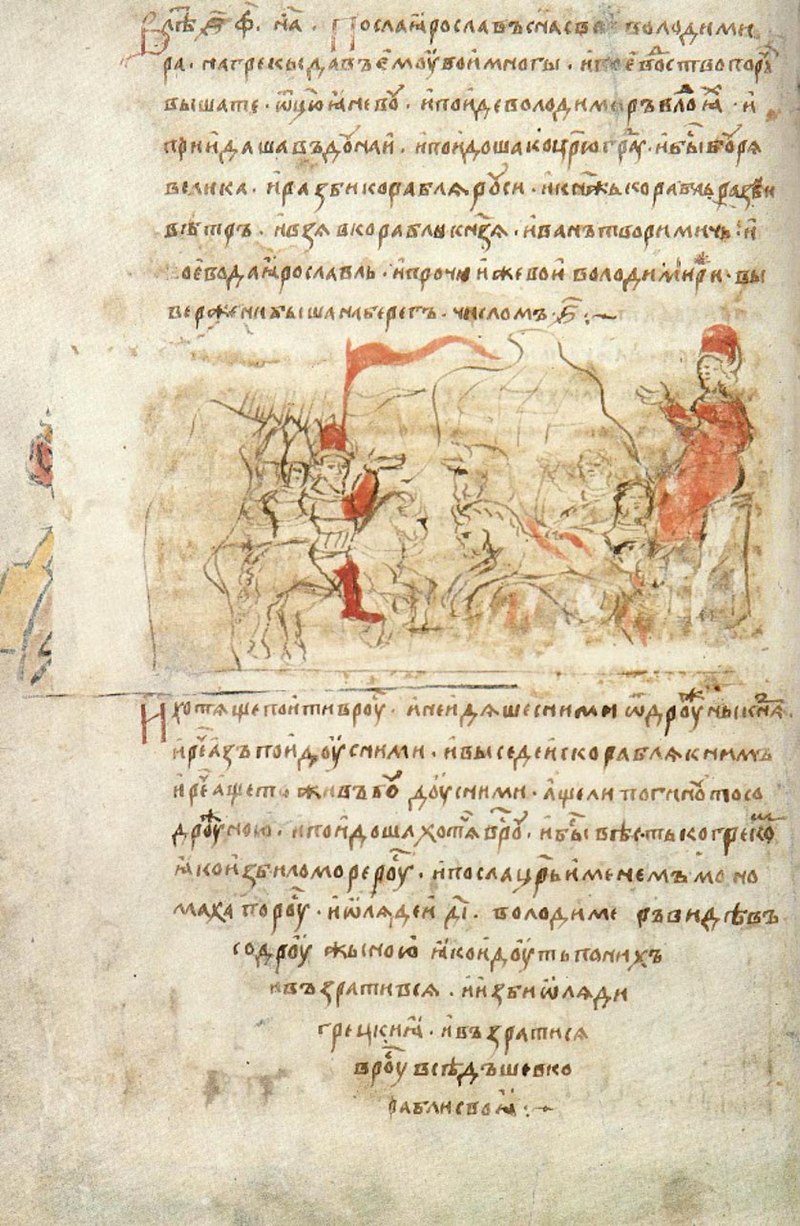 В лѣ ҂ѕ ф н҃а · Посла Ꙗрославъ сн҃а своего Володими
ра · на грекы давъ емоу вои многы · и воеводьство пору
вышате · ѿцю ꙗневу · и поиде володимиръ в лодьꙗ · и
приидаша въ доунаи · и поидоша ко црюграду · и быс боуря
велика · и разби корабля роуси · и княжь корабль разби
вѣтръ · и взя в корабль князя · иванъ творимичь · и
воевода ꙗрославль · и прочии же вои володимири · вы
вержени быша на берегъ · числомъ · ҂ѕ ·:~
И хотяще поити в роу · и не идяше с ними ѿ дроужины княжа ·
и рече азъ поидоу с ними · и выседе ис корабля к ним
и рече аще живъ боудоу с ними · аще ли погиноу то со
дроужиною · и поидоша хотя в роу · и быс вѣсть ко греком
ꙗко изби ло море роусь · и посла црь именемъ моно
маха по роуси · и ѡляди д҃і · володимеръ видѣвъ
со дроужыною ꙗко идоуть по нихъ
въвратився · и изби ѡляди
грецкиꙗ · и възратися
в роу всѣдъше в ко
рабли своꙗ ·:~